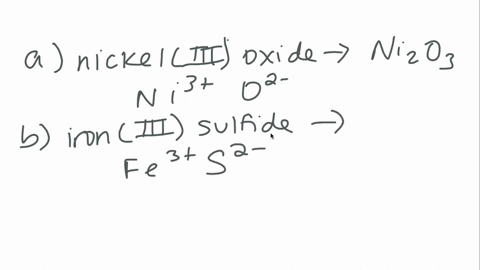 a) nickel(III) oxide → Ni₂O₃
Ni³⁺ O²⁻
b) iron(III) sulfide →
Fe³⁺ S²⁻